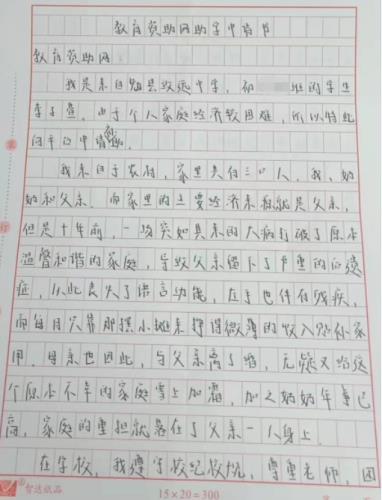 教育资助网助学申请书
教育资助网:
我是来自勉县致远中学,初 班的学生
李子萱。由于个人家庭经济较困难,所以特此
向平台申请帮助。
我来自于农村,家里共有三口人,我、奶
奶和父亲。而家里的主要经济来源就是父亲,
但是十年前,一场突如其来的大病打破了原本
温馨和谐的家庭,导致父亲留下了严重的后遗
症,从此丧失了语言功能,左手也伴有残疾,
而每月只靠那摆小摊来挣得微薄的收入贴补家
用。母亲也因此,与父亲离了婚,无疑又给这
个原本不幸的家庭雪上加霜,加之奶奶年事已
高,家庭的重担就落在了父亲一人身上。
在学校,我遵守校纪校规,尊重老师,团
智达纸品
15×20=300